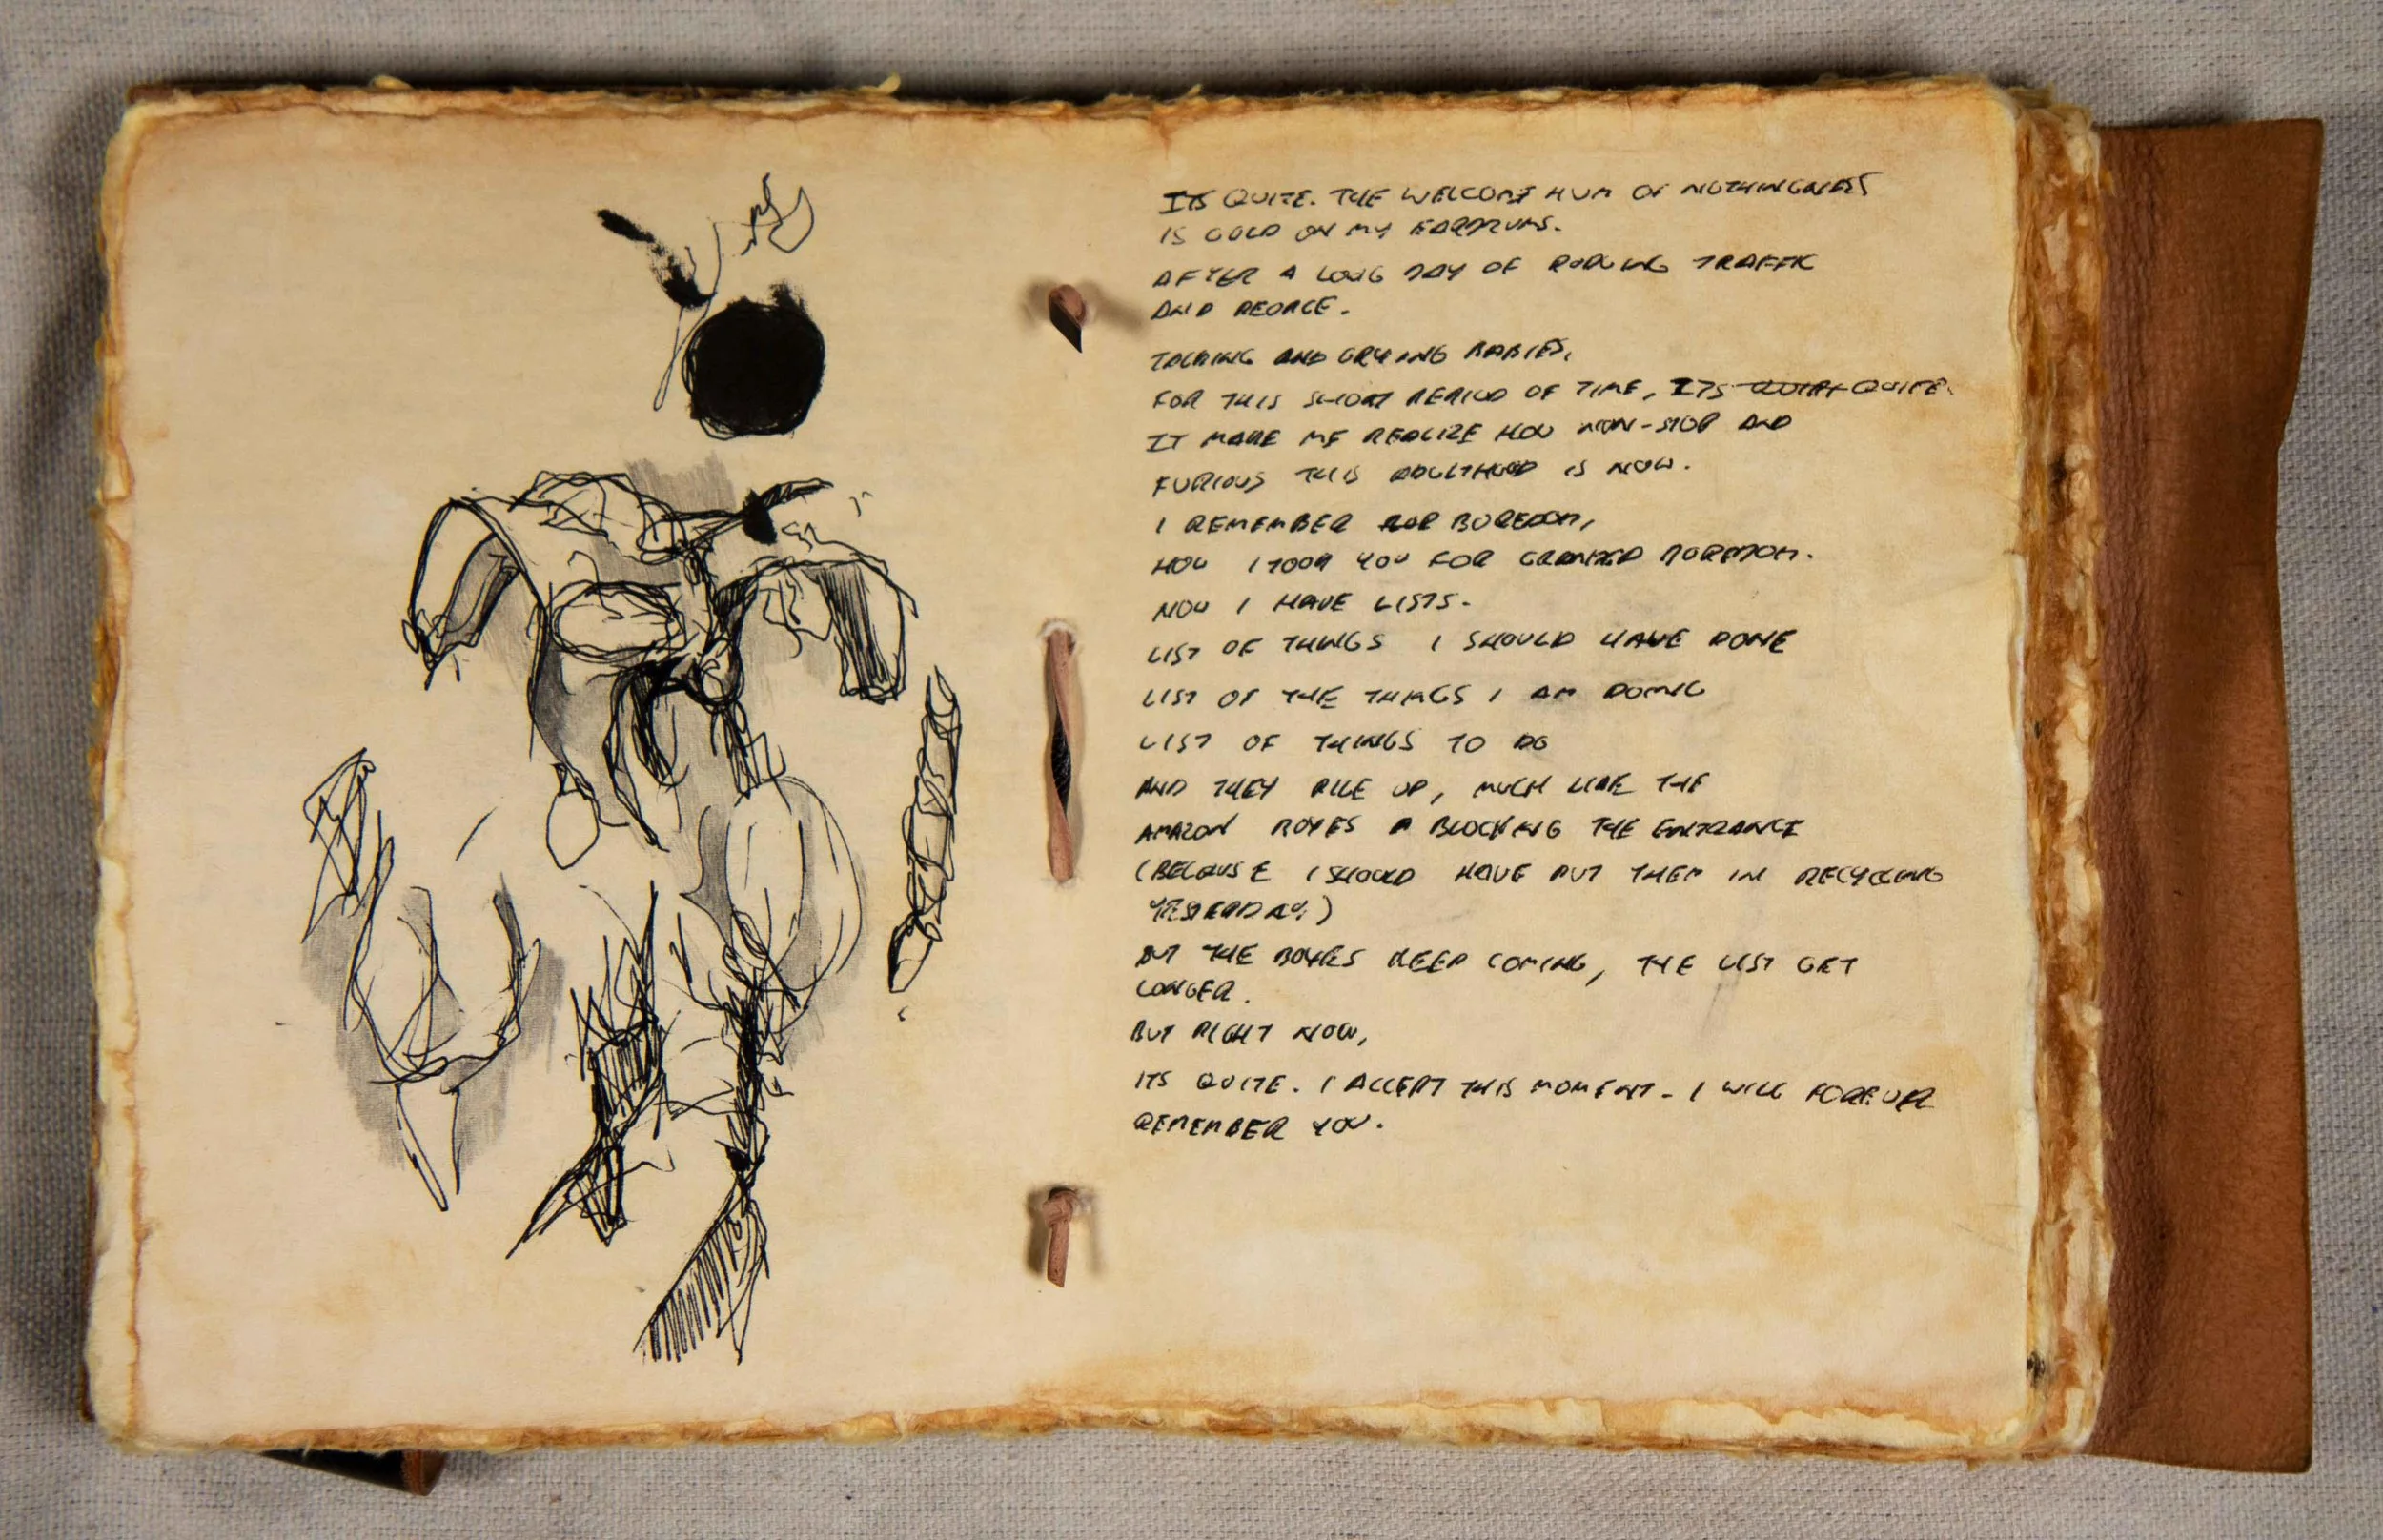 ITS QUITE. THE WELCOME HUM OF NOTHINGNESS
IS GOLD ON MY EARDRUMS.
AFTER A LONG DAY OF ROARING TRAFFIC
AND PEOPLE.
TALKING AND CRYING BABIES,
FOR THIS SHORT PERIOD OF TIME, ITS QUITE.
IT MAKE ME REALIZE HOW NON-STOP AND
FURIOUS THIS ADULTHOOD IS NOW.
I REMEMBER BOREDOM,
HOW I TOOK YOU FOR GRANTED BOREDOM.
NOW I HAVE LISTS.
LIST OF THINGS I SHOULD HAVE DONE
LIST OF THE THINGS I AM DOING
LIST OF THINGS TO DO
AND THEY PILE UP, MUCH LIKE THE
AMAZON BOXES BLOCKING THE ENTRANCE
(BECAUSE I SHOULD HAVE PUT THEM IN RECYCLING
YESTERDAY)
BUT THE BOXES KEEP COMING, THE LIST GET
LONGER.
BUT RIGHT NOW,
ITS QUITE. I ACCEPT THIS MOMENT. I WILL FOREVER
REMEMBER YOU.